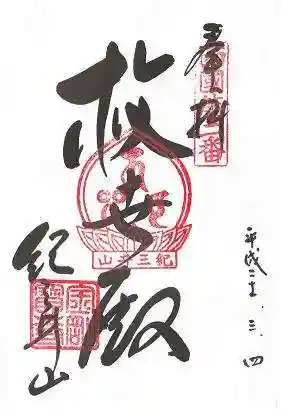 奉拝
救世殿
紀三井山
平成二十一.三.四
紀三井山
金剛
寶
番